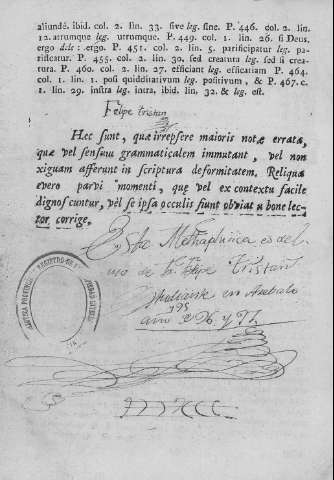 aliundè. ibid. col. 2. lin. 33. sive leg. sine. P. 446. col. 2. lin.
12. atrumque leg. utrumque. P. 449. col. 1. lin. 26. si Deus,
ergo dele : ergo. P. 451. col. 2. lin. 5. parificatur leg. pa-
rificatur. P. 455. col. 2. lin. 30. sed creatura leg. sed si crea-
tura. P. 460. col. 2. lin. 27. efficiant leg. efficatiam P. 464.
col. 1. lin. 1. posi quidditativum leg. positivum, & P. 467. c.
1. lin. 29. instra leg. intra, ibid. lin. 32. & leg. est.
Felipe tristan
Hec sunt, quæ irrepsere maioris notæ errata,
quæ vel sensum grammaticalem immutant, vel non
xiguam afferunt in scriptura deformitatem. Reliquæ
vero parvi momenti, quę vel ex contextu facile
dignoscuntur, vèl se ipsa occulis siunt obvia: u bone lec-
tor, corrige.
Esta Methaphisica es del
uso de Fr. Felipe Tristan
en Arebalo
795
ano 96 y 97
REGISTRO DE